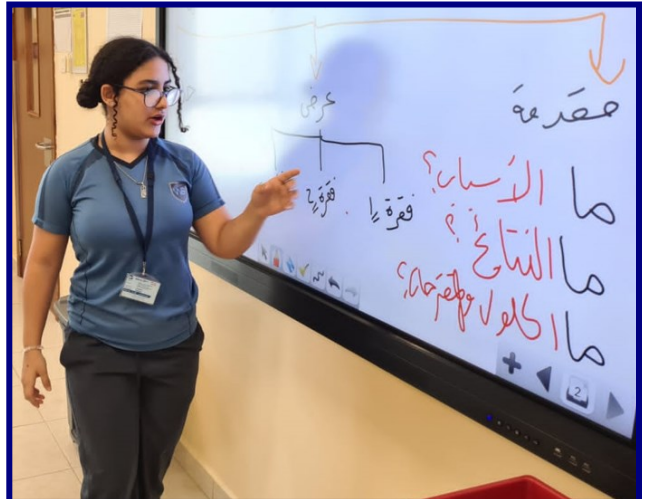 مقدمة
عرض
فقرة 1
فقرة 2
ما الأسباب؟
ما النتائج؟
ما الحلول المقترحة؟
2